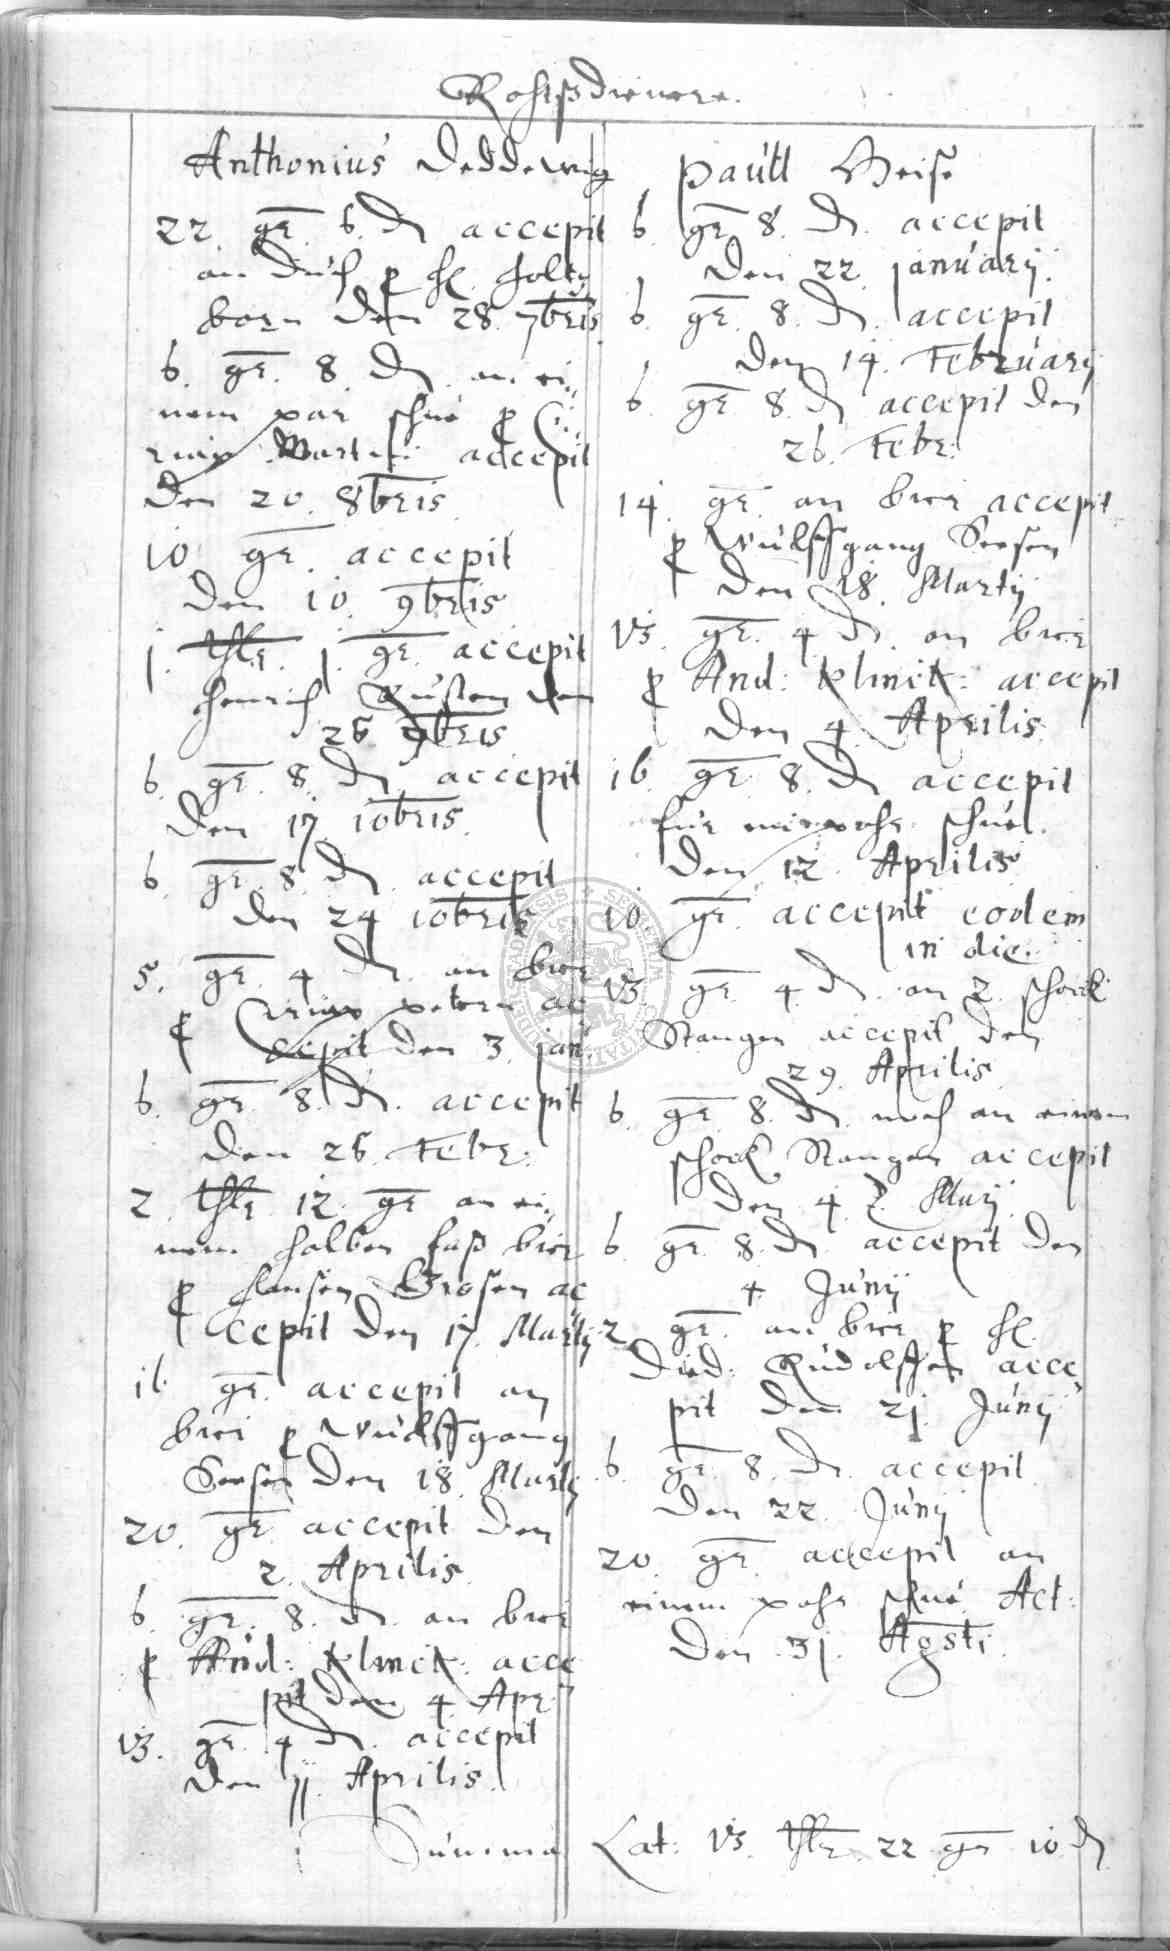 Rohtsdienere.
Anthonius Deddewig
22. gr. 6. ₰ accepit
an duch ꝑ H. Holtz
born den 28. 7bris
6. gr. 8. ₰ an ei„
nem par schue ꝑ
Martin accepit
den 20. 8bris
10 gr. accepit
den 10. 9bris
j. thlr. j. gr. accepit
Henrich Rusten den
26 9bris
6. gr. 8. ₰ accepit
den 17. 10bris
6. gr. 8. ₰. accepit
den 24 10bris
5. gr. 4 ₰. an bier
ꝑ petern ac
cepit den 3. jan:
6. gr. 8. ₰. accepit
den 26. Febr:
2. thlr 12. gr an ei„
nem halben faß bier
ꝑ Hansen Grosen ac
cepit den 17. Martij
16 gr. accepit an
bier ꝑ Wulffgang
Seesen den 18. Martij
20. gr accepit den
2. Aprilis
6. gr. 8. ₰. an bier
ꝑ And: Klinck: acce„
pit den 4 Apr:
13. gr. 4 ₰. accepit
den jj. Aprilis
Summa
Paull Heise
6. gr 8. ₰. accepit
den 22. january.
6. gr. 8. ₰. accepit
den 14. February
6. gr 8. ₰ accepit den
26. Febr:
14. gr. an bier accepit
ꝑ Wulffgang Seesen
den 18. Martij
13. gr. 4 ₰. an bier
ꝑ And: Klinck: accepit
den 4 Aprilis
16. gr. 8. ₰ accepit
für ein pahr schue.
den 12. Aprilis
10. gr. accepit eodem
in die.
13 gr. 4. ₰. an 2. schock
Stangen accepit den
29. Aprilis
6. gr 8. ₰. noch an einem
schock Stangen accepit
den 4. Maij
6. gr 8. ₰. accepit den
4. Junij
2 gr. an bier ꝑ H.
Died: Rudolffen acce„
pit den 2j. Junij
6. gr 8. ₰. accepit
den 22. Junij
20. gr. accepit an
einem pahr schue Act:
den 3j. Agsti
Lat: 13. thlr. 22 gr 10 ₰